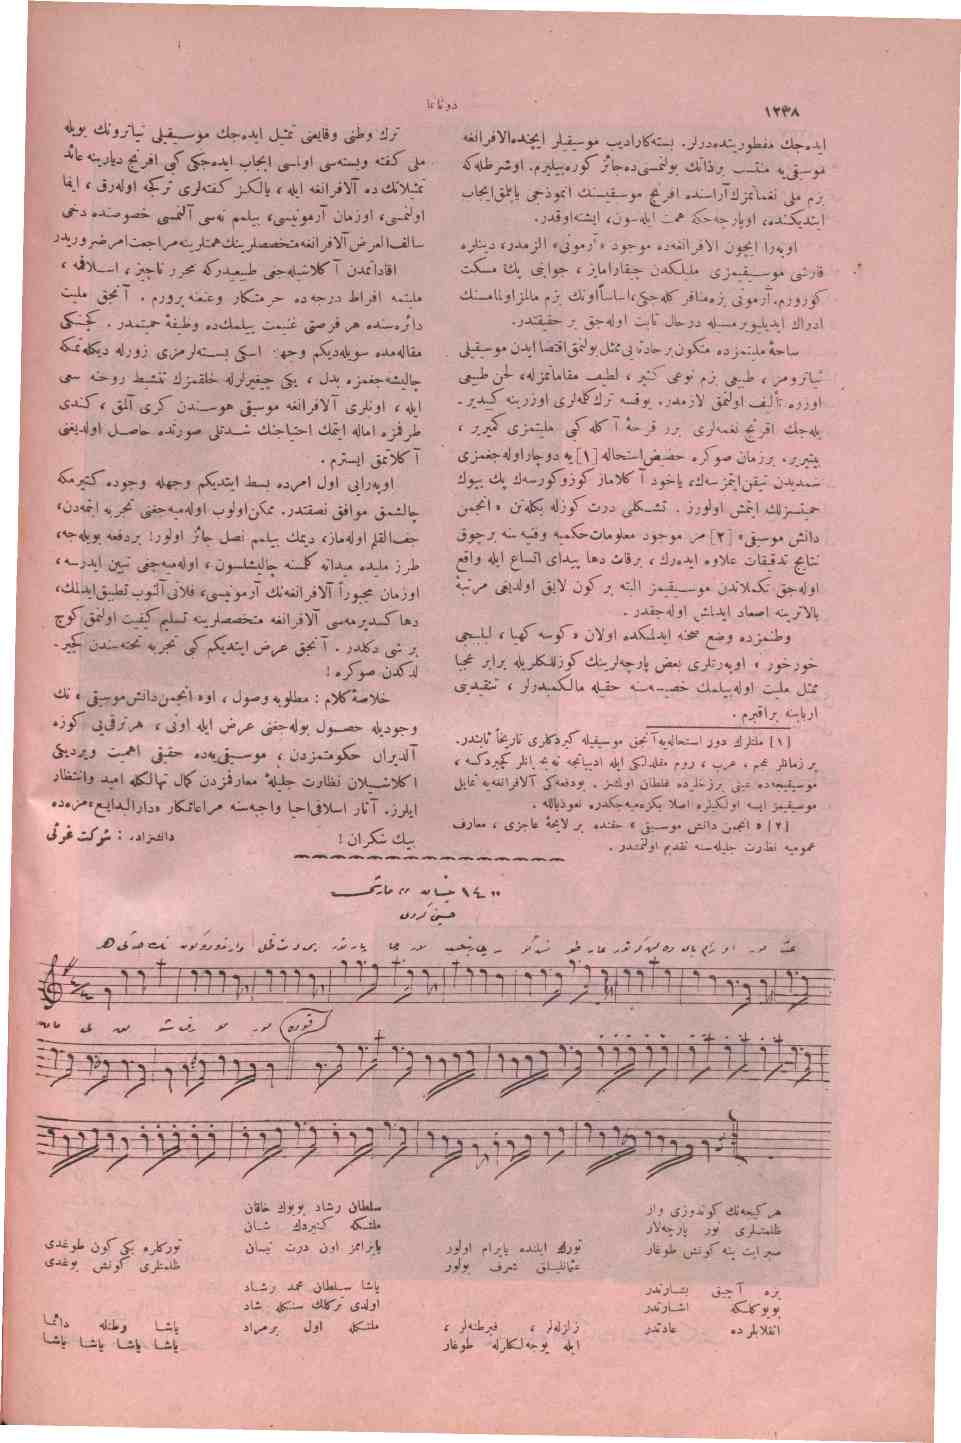 ١٢٣٨
دوناما
ایده‌جك مفطوریتده‌درلر. بسته‌كارادیب موسیقیلر ایچنده‌الافرانغه
موسیقی‌یه منتسب برذاتك بولنمسنی‌ده‌جائز كوره‌بیلیرم. اوشرطله‌كه
بزم ملی نغماتمزك‌آراسنده افرنج موسیقیسنك انموذجی یاپلمق‌ایجاب
ایتدیكنده، اوپارچه‌جكه همت ایله‌سون، ایشته‌اوقدر.
اوپه‌را ایچون الافرانغه‌ده موجود «آرمونی» الزمدر، دینلره
قارشی موسیقیمزی ملیلكدن چیقارامایز ، جوابنی پك مسكت
كورورم. آرمونی بزه‌منافر كله‌جكی،اساساًاونك بزم مالمزاولمامسنك
ادراك ایدیلیویرمسیله درحال ثابت اوله‌جق بر حقیقتدر.
ساحهٔ ملیتمزده متكون برحادثه‌یی ممثل بولنمق‌اقتضا ایدن موسیقیلی
تیاترومز ، طبیعی بزم نوعی كثیر ، لطیف مقاماتمزله، لحن طبیعی
اوزره تألیف اولنمق لازمدر. یوقسه ترك‌كله‌لری اوزرینه كییدیر-
یله‌جك افرنج نغمه‌لری برر قرحهٔ آكله كبی ملیتمزی كمیریر ،
بیتیریر. برزمان صوكره حضیض‌استحاله [١] یه دوچاراوله‌جغمزی
شمدیدن تیقن‌ایتمزسه‌ك، یاخود آكلاماز كوزوكورسه‌ك پك بیوك
حمیتسزلك ایتمش اولورز . تشكلنی درت كوزله بكله‌نن « انجمن
دانش موسیقی» [٢] مز موجود معلومات‌حكمیه وفنیه‌سنه برچوق
نتایج تدقیقات علاوه ایده‌رك ، برقات دها پیدای اتساع ایله واقع
اوله‌جق تكملاتدن موسیقیمز البته بر كون لایق اولدیغی مرتبهٔ
بالاترینه اصعاد ایدلمش اوله‌جقدر .
وطنمزده وضع صحنه ایدلمكده اولان « كوسه كهیا ، لبلبیجی
خورخور ، اوپه‌رتلری بعض پارچه‌لرینك كوزللكلریله برابر عجبا
ممثل ملیت اوله‌بیلمك خصیصه‌سنه حقیله مالكمیدرلر ، تنقیدینی
اربابنه براقیرم .
[١] ملتلرك دور استحاله‌یه‌آنجق موسیقیله كیردكلری تاریخاً ثابتدر.
بر زمانلر عجم ، عرب ، روم مقلدلكی ایله ادبیاتجه نه‌بحرانلر كچیردكسه ،
موسیقیجه‌ده عینی برزخلرده غلطان اولدق. بودفعه‌كی آلافرانغه‌یه تمایل
موسیقیمز ایسه اولكیلره اصلا بكزه‌میه‌جكدره نعوذبالله .
[٢] « انجمن دانش موسیقی » حقنده بر لایحهٔ عاجزی ، معارف
عمومیه نظارت جلیله‌سنه تقدیم اولنمشدر .
ترك وطنی وقایعنی تمثیل ایده‌جك موسیقیلی تیاترونك بویله
ملی كفته وبسته‌سی اولمسی ایجاب ایده‌جكی كبی افرنج دیارینه عائد
تمثیلاتك ده آلافرانغه ایله ، یالكز كفته‌لری تركجه اوله‌رق ، ایفا
اولنمسی، اوزمان آرمونیسی، بیلمم نه‌سی آلنمسی خصوصنده دخی
سالف‌العرض آلافرانغه‌متخصصلرینك‌همتلرینه‌مراجعت‌امرضروریدر
افاداتمدن آكلاشیله‌جغی طبیعیدركه محرر ناچیز ، اسلافمه ،
ملیتمه افراط درجه‌ده حرمتكار وعنعنه‌پرورم . آنجق ملیت
دائره‌سنده هر فرصتی غنیمت بیلمك‌ده وظیفهٔ حمیتمدر . كچنكی
مقاله‌مده سویله‌دیكم وجهله اسكی بسته‌لرمزی زورله دیكله‌تمكه
چالیشه‌جغمزه بدل ، یكی چیغیرلرله خلقمزك تنشیط روحنه سعی
ایله ، اونلری آلافرانغه موسیقی هوسندن كری آلمق ، كندی
طرفمزه اماله ایتمك احتیاجنك شدتلی صورتده حاصل اولدیغنی
آكلاتمق ایسترم .
اوپه‌رایی اول امرده بسط ایتدیكم وجهله وجوده كتیرمكه
چالشمق موافق نصفتدر. ممكن‌اولوب اوله‌میه‌جغنی تجربه ایتمه‌دن،
جف‌القلم اوله‌ماز، دیمك بیلمم نصل جائز اولور! بردفعه بویله‌جه،
طرز ملیده میدانه كلمسنه چالیشلسون ، اوله‌میه‌جغی تبین ایدرسه ،
اوزمان مجبوراً آلافرانغه‌نك آرمونیسی، فلانی آلنوب تطبیق‌ایدلمك،
دها كسدیرمه‌سی آلافرانغه متخصصلرینه تسلیم كیفیت اولنمق كوچ
بر شی دكلدر . آنجق عرض ایتدیكم كبی تجربه تخته‌سندن كچیر-
لدكدن صوكره !
خلاصهٔ كلام : مطلوبه وصول ، او« انجمن‌دانش‌موسیقی » نك
وجودیله حصول بوله‌جغنی عرض ایله اونی ، هرترقی‌یی كوزه
آلدیران حكومتمزدن ، موسیقی‌یه‌ده حقیقی اهمیت ویردیكی
اكلاشیلان نظارت جلیلهٔ معارفمزدن كمال تهالكله امید وانتظار
ایلرز. آثار اسلافی‌احیا واجبه‌سنه مراعاتكار «دارالبدایع»مزه‌ده
بیك شكران !
دانشزاده : شوكت غوثی
« ١٤ نیسان » مارشی
حسینی كردی
هر كیجه‌نك كوندوزی وار
ظلمتلری نور پارچه‌لار
صبر ایت ینه كونش طوغار
بزه آچیق بشارتدر
بویوكلكه اشارتدر
انقلابلر ده عادتدر
تورك ایلنده بایرام اولور
عثمانلیلق شرف بولور
زلزله‌لر ، فیرطنه‌لر ،
ایله یوجه‌لكلرله طوغار
سلطان رشاد بویوك خاقان
ملتكه كتیردك شان
بایرامز اون درت نیسان
یاشا سلطان محمد رشاد
اولدی تركلك سنكله شاد
ملتكله اول برمراد
توركلره یكی كون طوغدی
ظلمتلری كونش بوغدی
یاشا وطنله دائما
یاشا یاشا یاشا یاشا